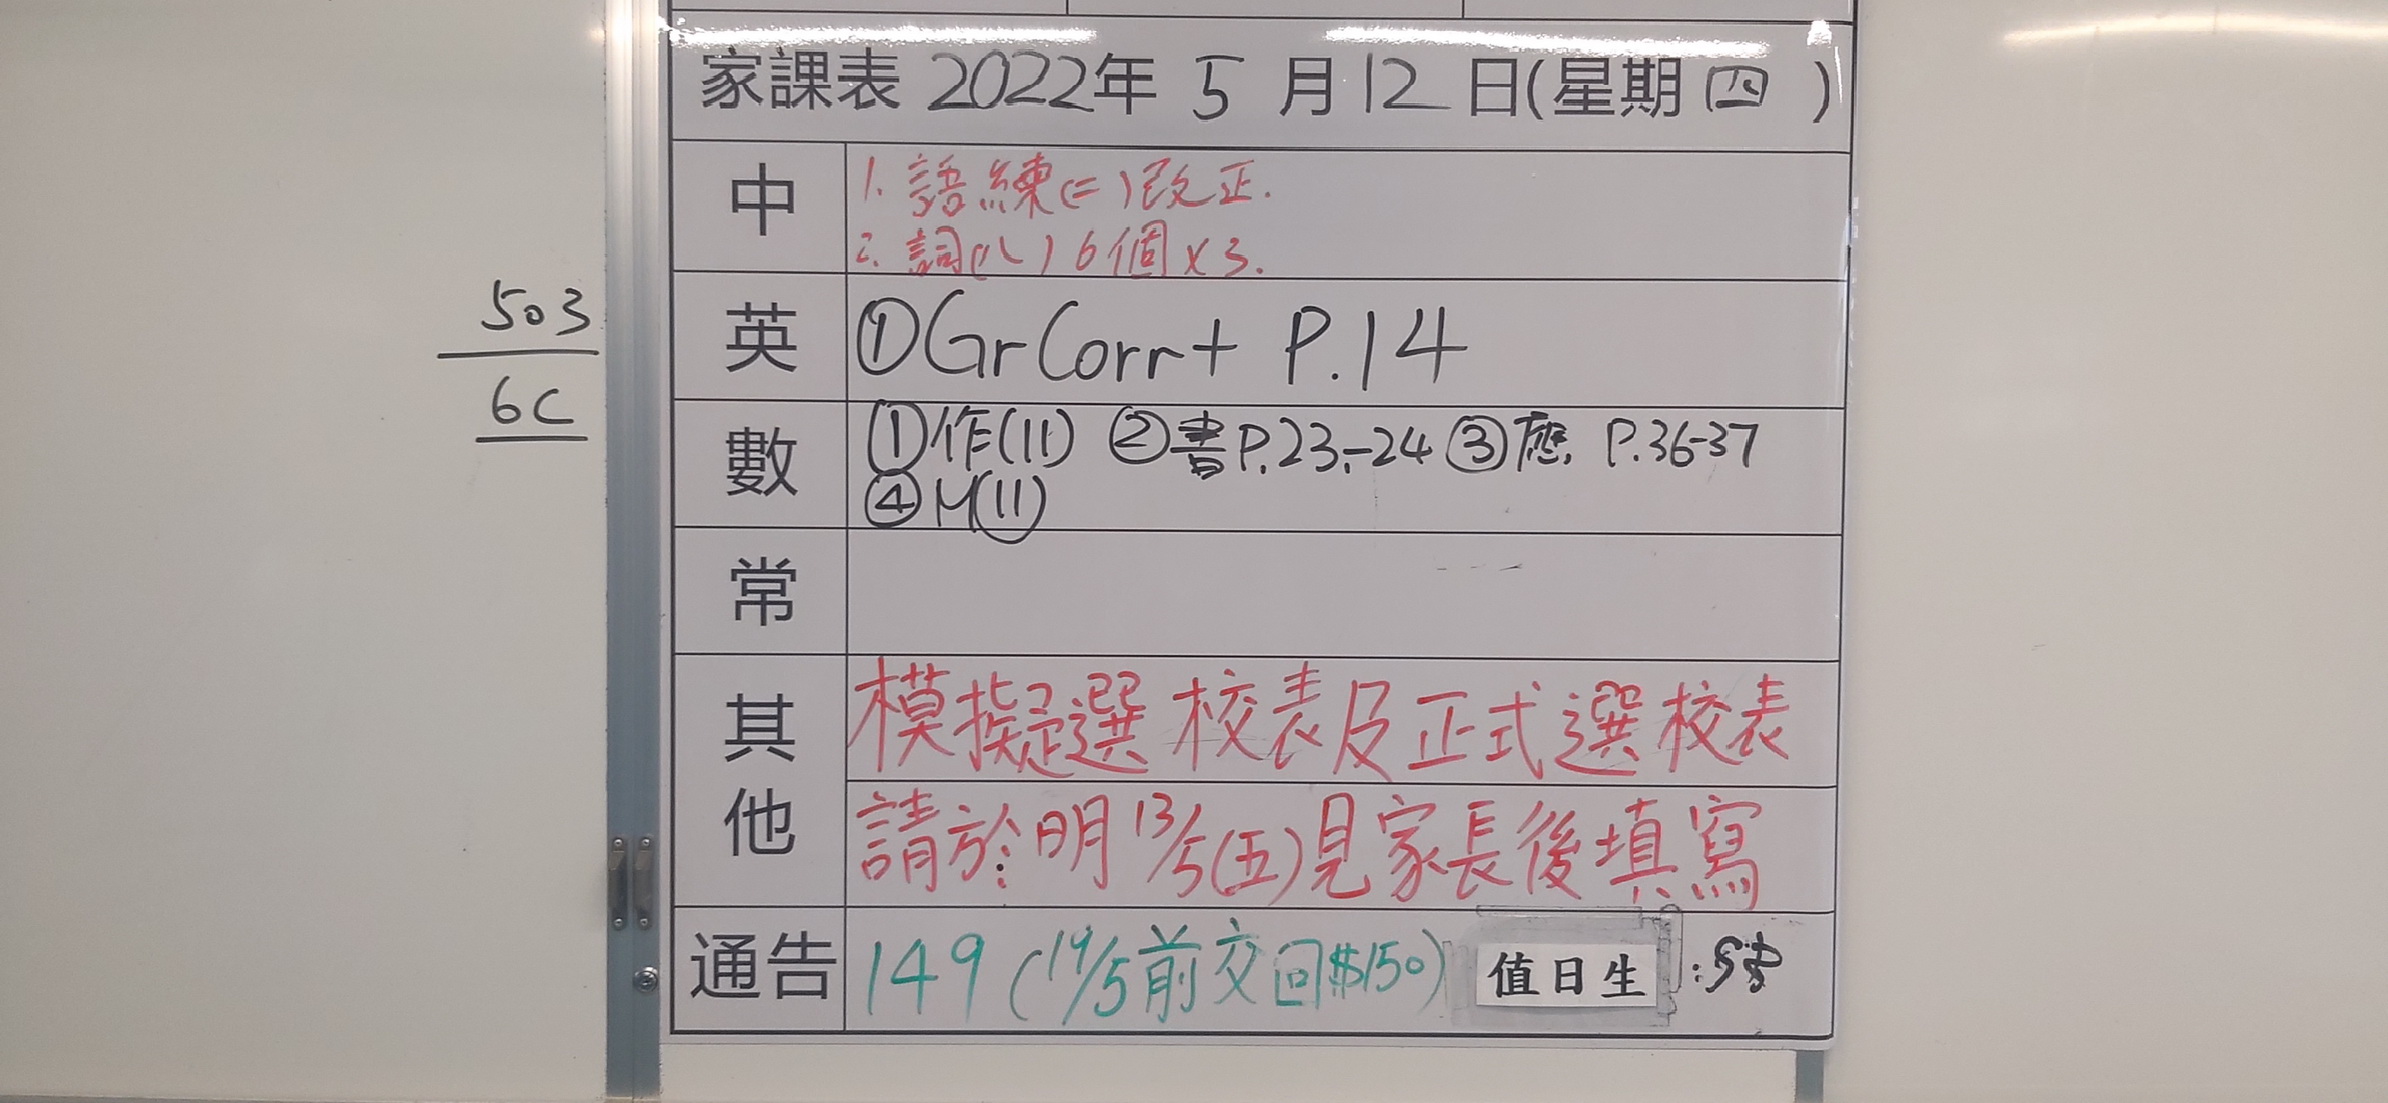 家課表 2022年 5 月 12 日(星期 四 )
中
1. 語練(二)改正.
2. 詞(八) 6個×3.
503
6C
英
①Gr Corr+ P.14
數
①作(11) ②書P.23-24 ③應. P.36-37
④M(11)
常
其他
模擬選校表及正式選校表
請於明13/5(五)見家長後填寫
通告
149 (19/5前交回$150)
值日生 :